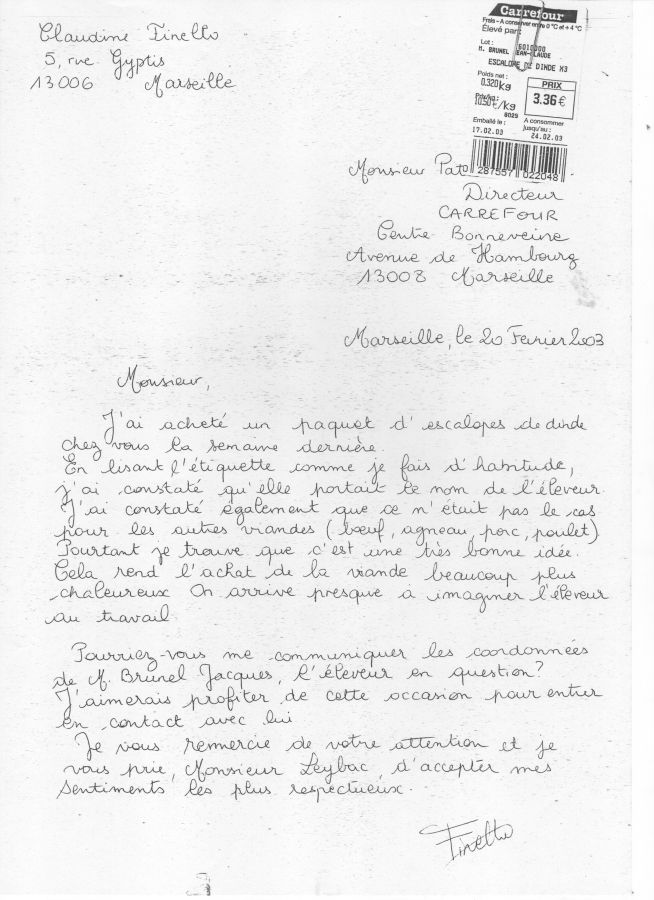 Claudine Finetto
5, rue Gyptis
13006 Marseille
Carrefour
Frais - A conserver entre 0 °C et + 4 °C
Élevé par:
Lot: 6010000
M. BRUNEL JEAN-CLAUDE
ESCALOPE DE DINDE X3
Poids net:
0.320kg
PRIX
3.36€
Prix/kg:
10.50€/kg
6029
Emballé le: A consommer jusqu'au:
17.02.03 24.02.03
287557 022048
Monsieur Pat
Directeur
CARREFOUR
Centre Bonneveine
Avenue de Hambourg
13008 Marseille
Marseille, le 20 Fevrier 2003
Monsieur,
J'ai acheté un paquet d'escalopes de dinde
chez vous la semaine dernière.
En lisant l'étiquette comme je fais d'habitude,
j'ai constaté qu'elle portait le nom de l'éleveur.
J'ai constaté également que ce n'était pas le cas
pour les autres viandes (bœuf, agneau, porc, poulet)
Pourtant je trouve que c'est une très bonne idée.
Cela rend l'achat de la viande beaucoup plus
chaleureux. On arrive presque à imaginer l'éleveur
au travail.
Pourriez-vous me communiquer les coordonnées
de M. Brunel Jacques, l'éleveur en question?
J'aimerais profiter de cette occasion pour entrer
en contact avec lui
Je vous remercie de votre attention et je
vous prie, Monsieur Leybac, d'accepter mes
sentiments les plus respectueux.
Finetto